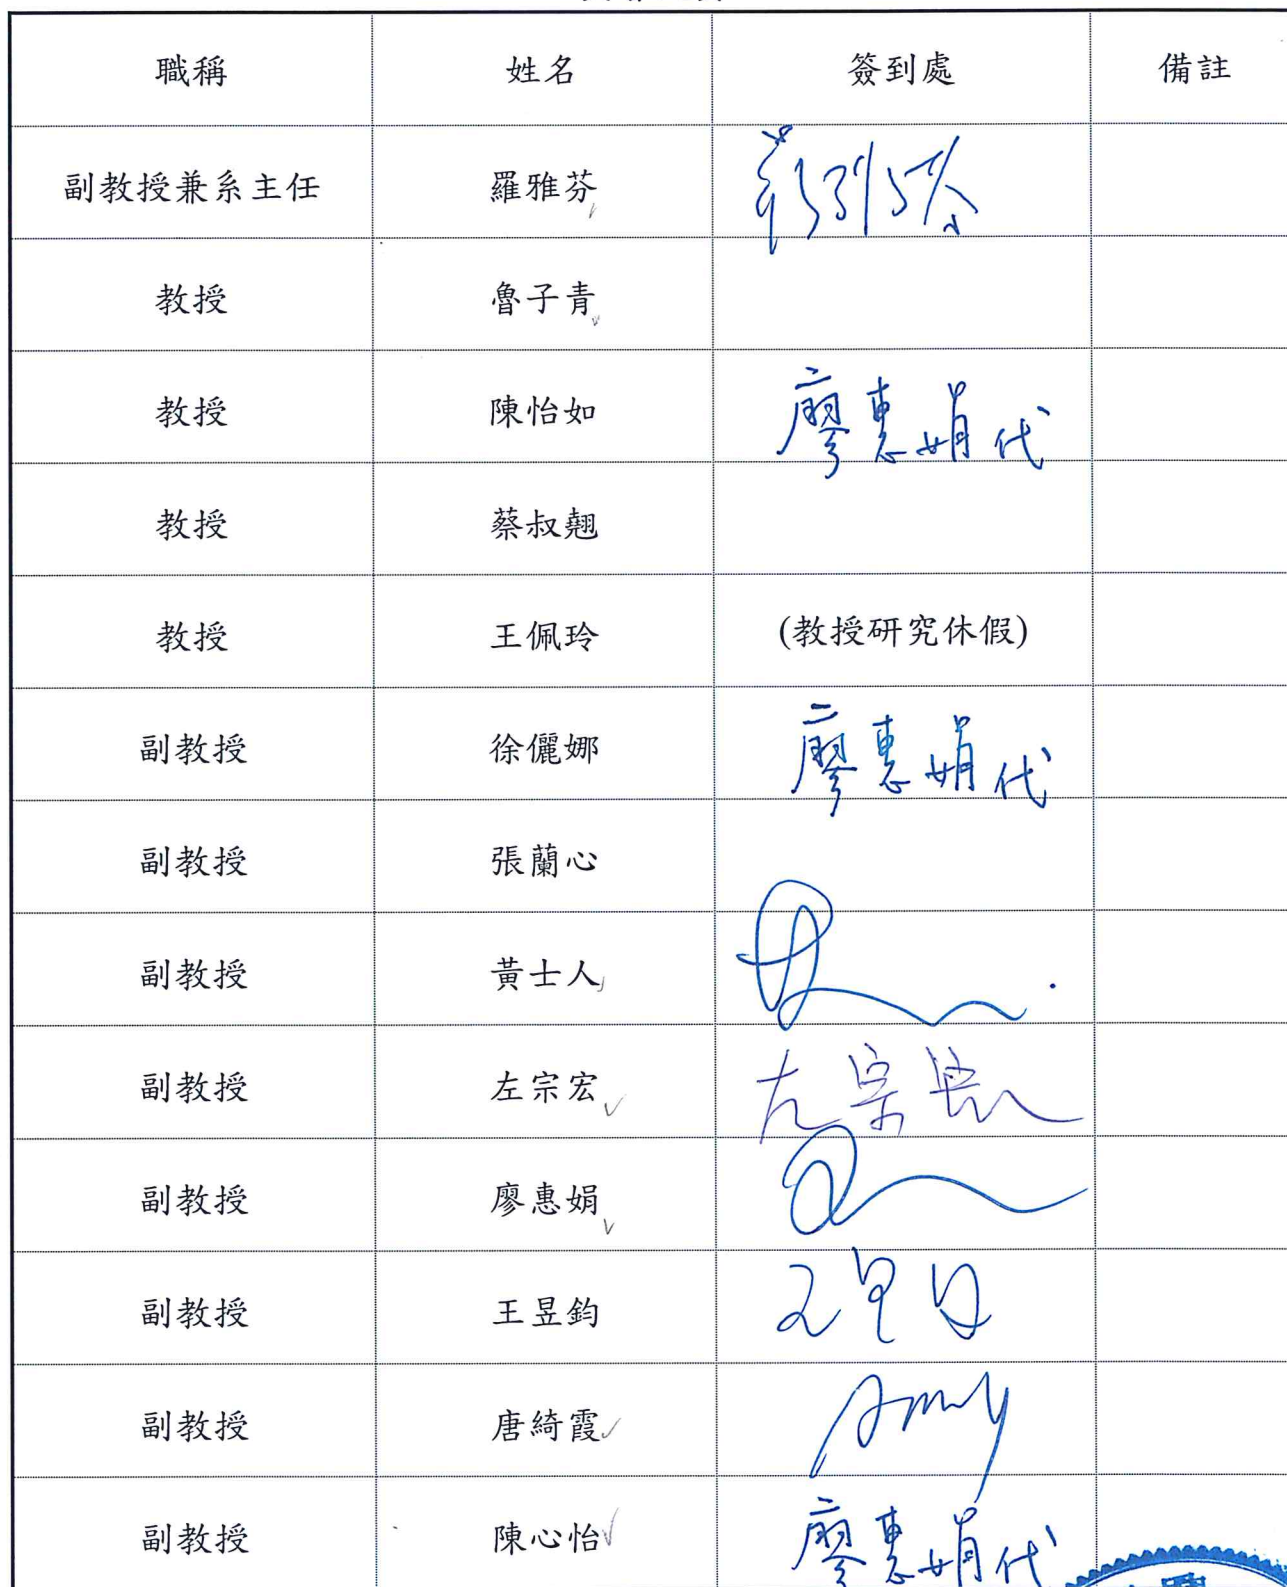 職稱 姓名 簽到處 備註
副教授兼系主任 羅雅芬
教授 魯子青
教授 陳怡如 廖惠娟代
教授 蔡叔翹
教授 王佩玲 (教授研究休假)
副教授 徐儷娜 廖惠娟代
副教授 張蘭心
副教授 黃士人
副教授 左宗宏 左宗宏
副教授 廖惠娟
副教授 王昱鈞
副教授 唐綺霞 Amy
副教授 陳心怡 廖惠娟代